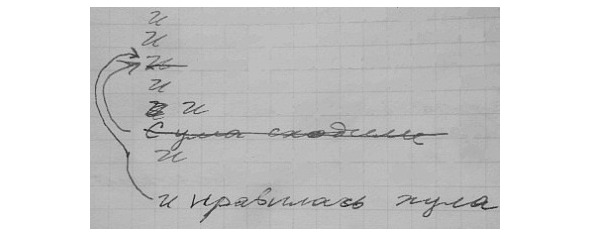 и
и
и
и
и
С ума сходили
и
и нравилась хула